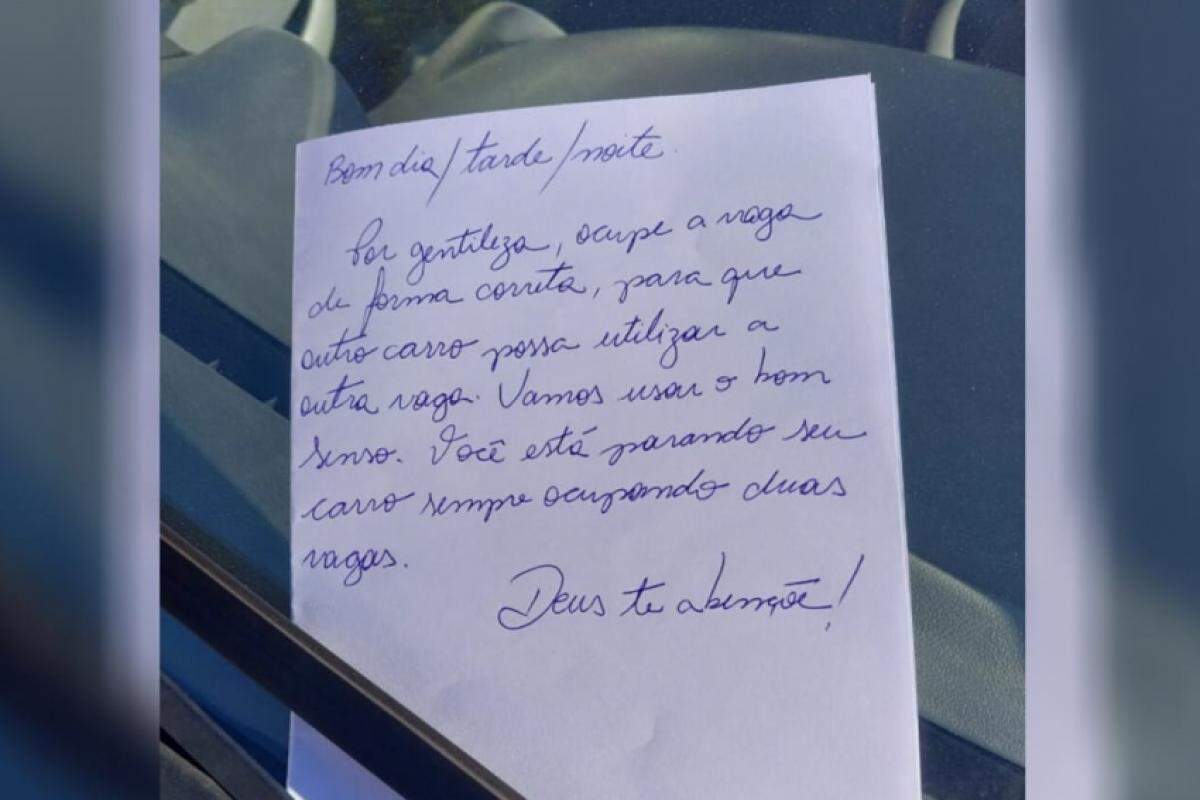 Bom dia/tarde/noite.
Por gentileza, ocupe a vaga
de forma correta, para que
outro carro possa utilizar a
outra vaga. Vamos usar o bom
senso. Você está parando seu
carro sempre ocupando duas
vagas.
Deus te abençõe!